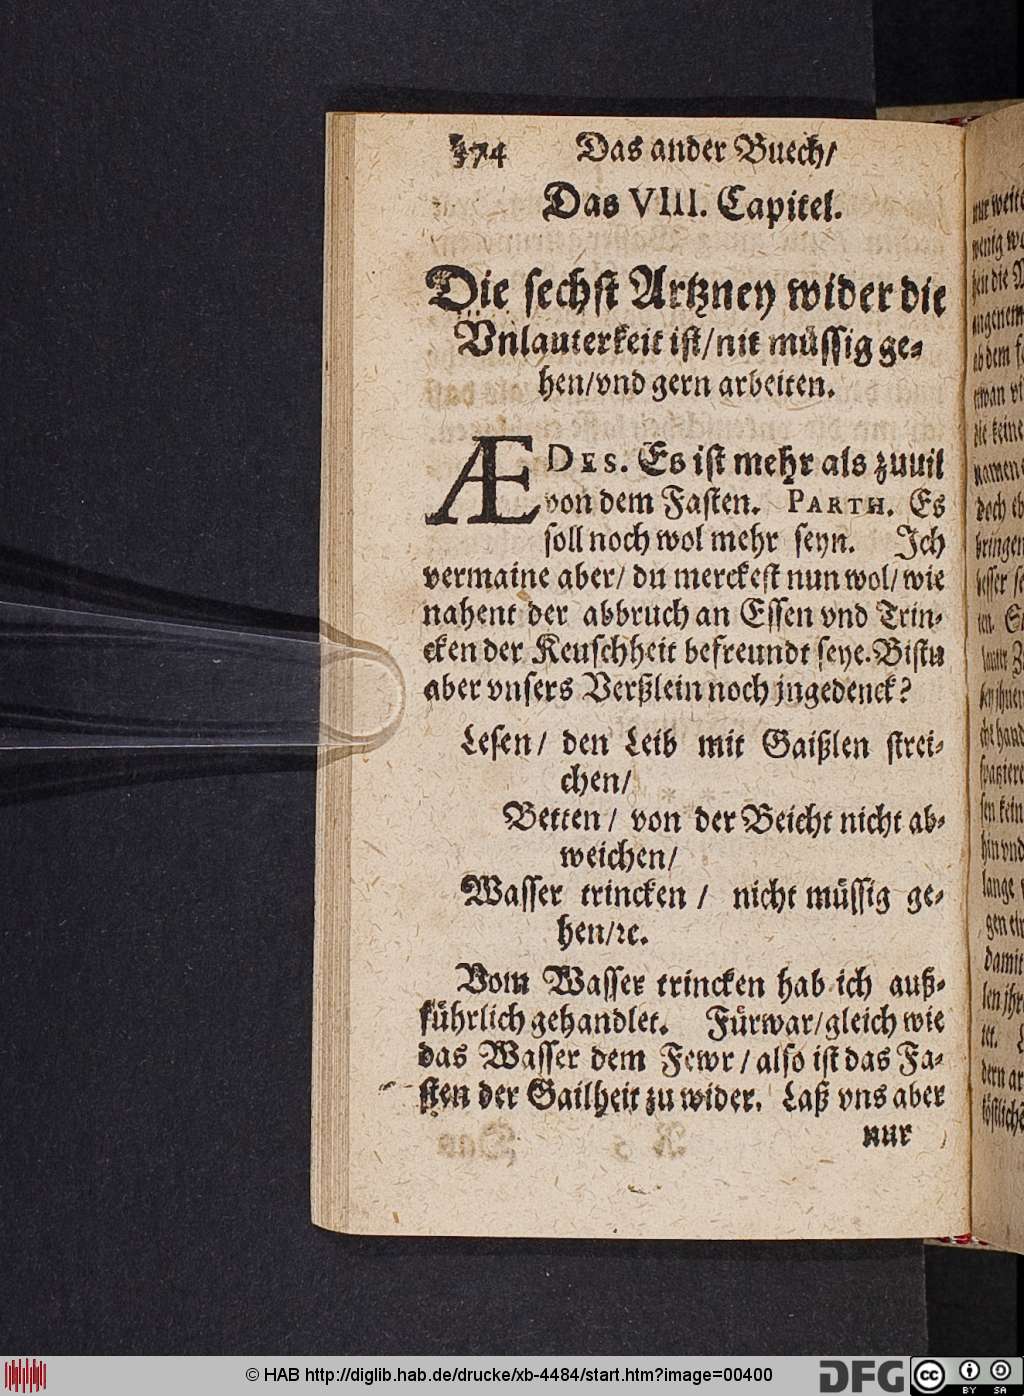 374 Das ander Buech/
Das VIII. Capitel.
Die sechst Artzney wider die
Vnlauterkeit ist/nit müssig ge-
hen/vnd gern arbeiten.
ÆDES. Es ist mehr als zuuil
von dem Fasten. PARTH. Es
soll noch wol mehr seyn. Ich
vermaine aber/ du merckest nun wol/ wie
nahent der abbruch an Essen vnd Trin-
cken der Keuschheit befreundt seye. Bistu
aber vnsers Verßlein noch jngedenck?
Lesen/ den Leib mit Gaißlen strei-
chen/
Betten/ von der Beicht nicht ab-
weichen/
Wasser trincken/ nicht müssig ge-
hen/ꝛc.
Vom Wasser trincken hab ich auß-
führlich gehandlet. Fürwar/gleich wie
das Wasser dem Fewr/ also ist das Fa-
sten der Gailheit zu wider. Laß vns aber
nur
© HAB http://diglib.hab.de/drucke/xb-4484/start.htm?image=00400
DFG
cc
BY SA